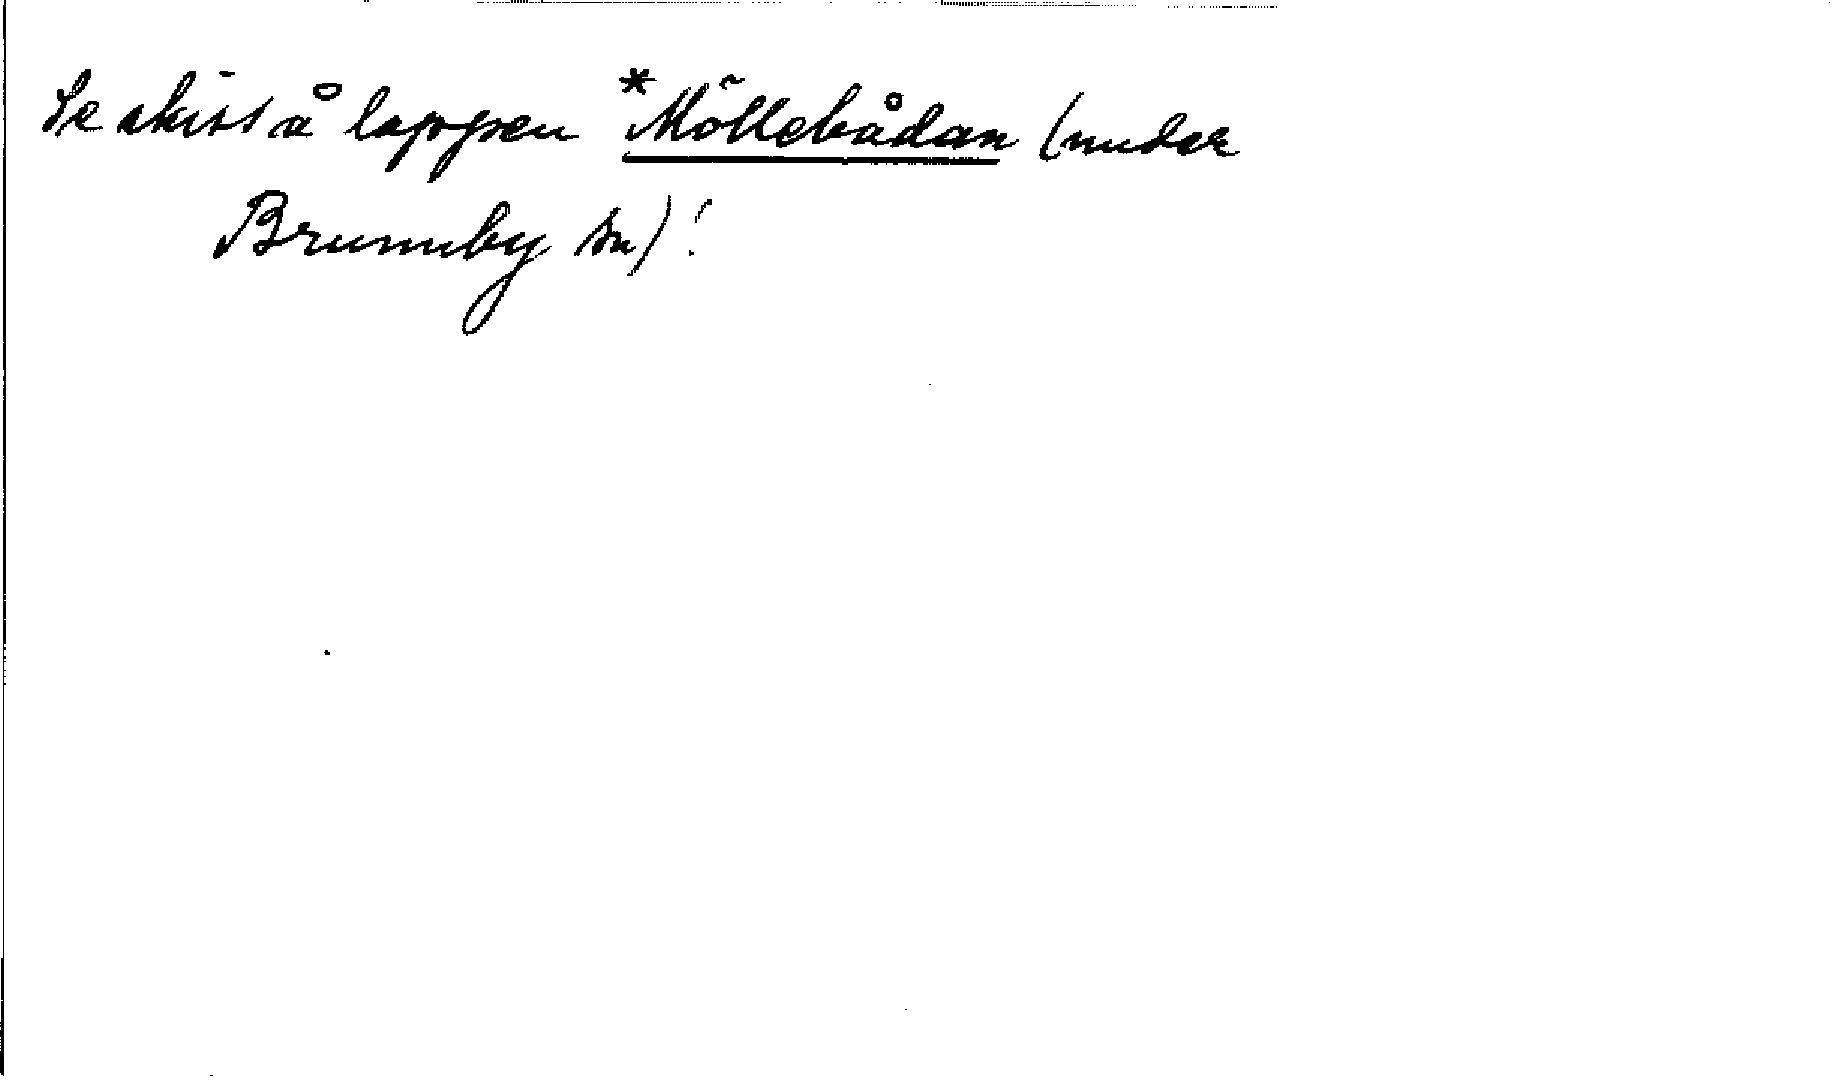 Se skiss å lappen *Möllebådan (under
Brunnby sn)!